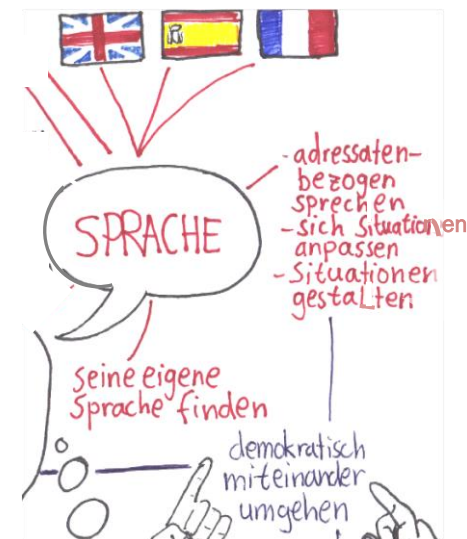 SPRACHE
- adressaten-
bezogen
sprechen
- sich Situationen
anpassen
- Situationen
gestalten
seine eigene
Sprache finden
demokratisch
miteinander
umgehen